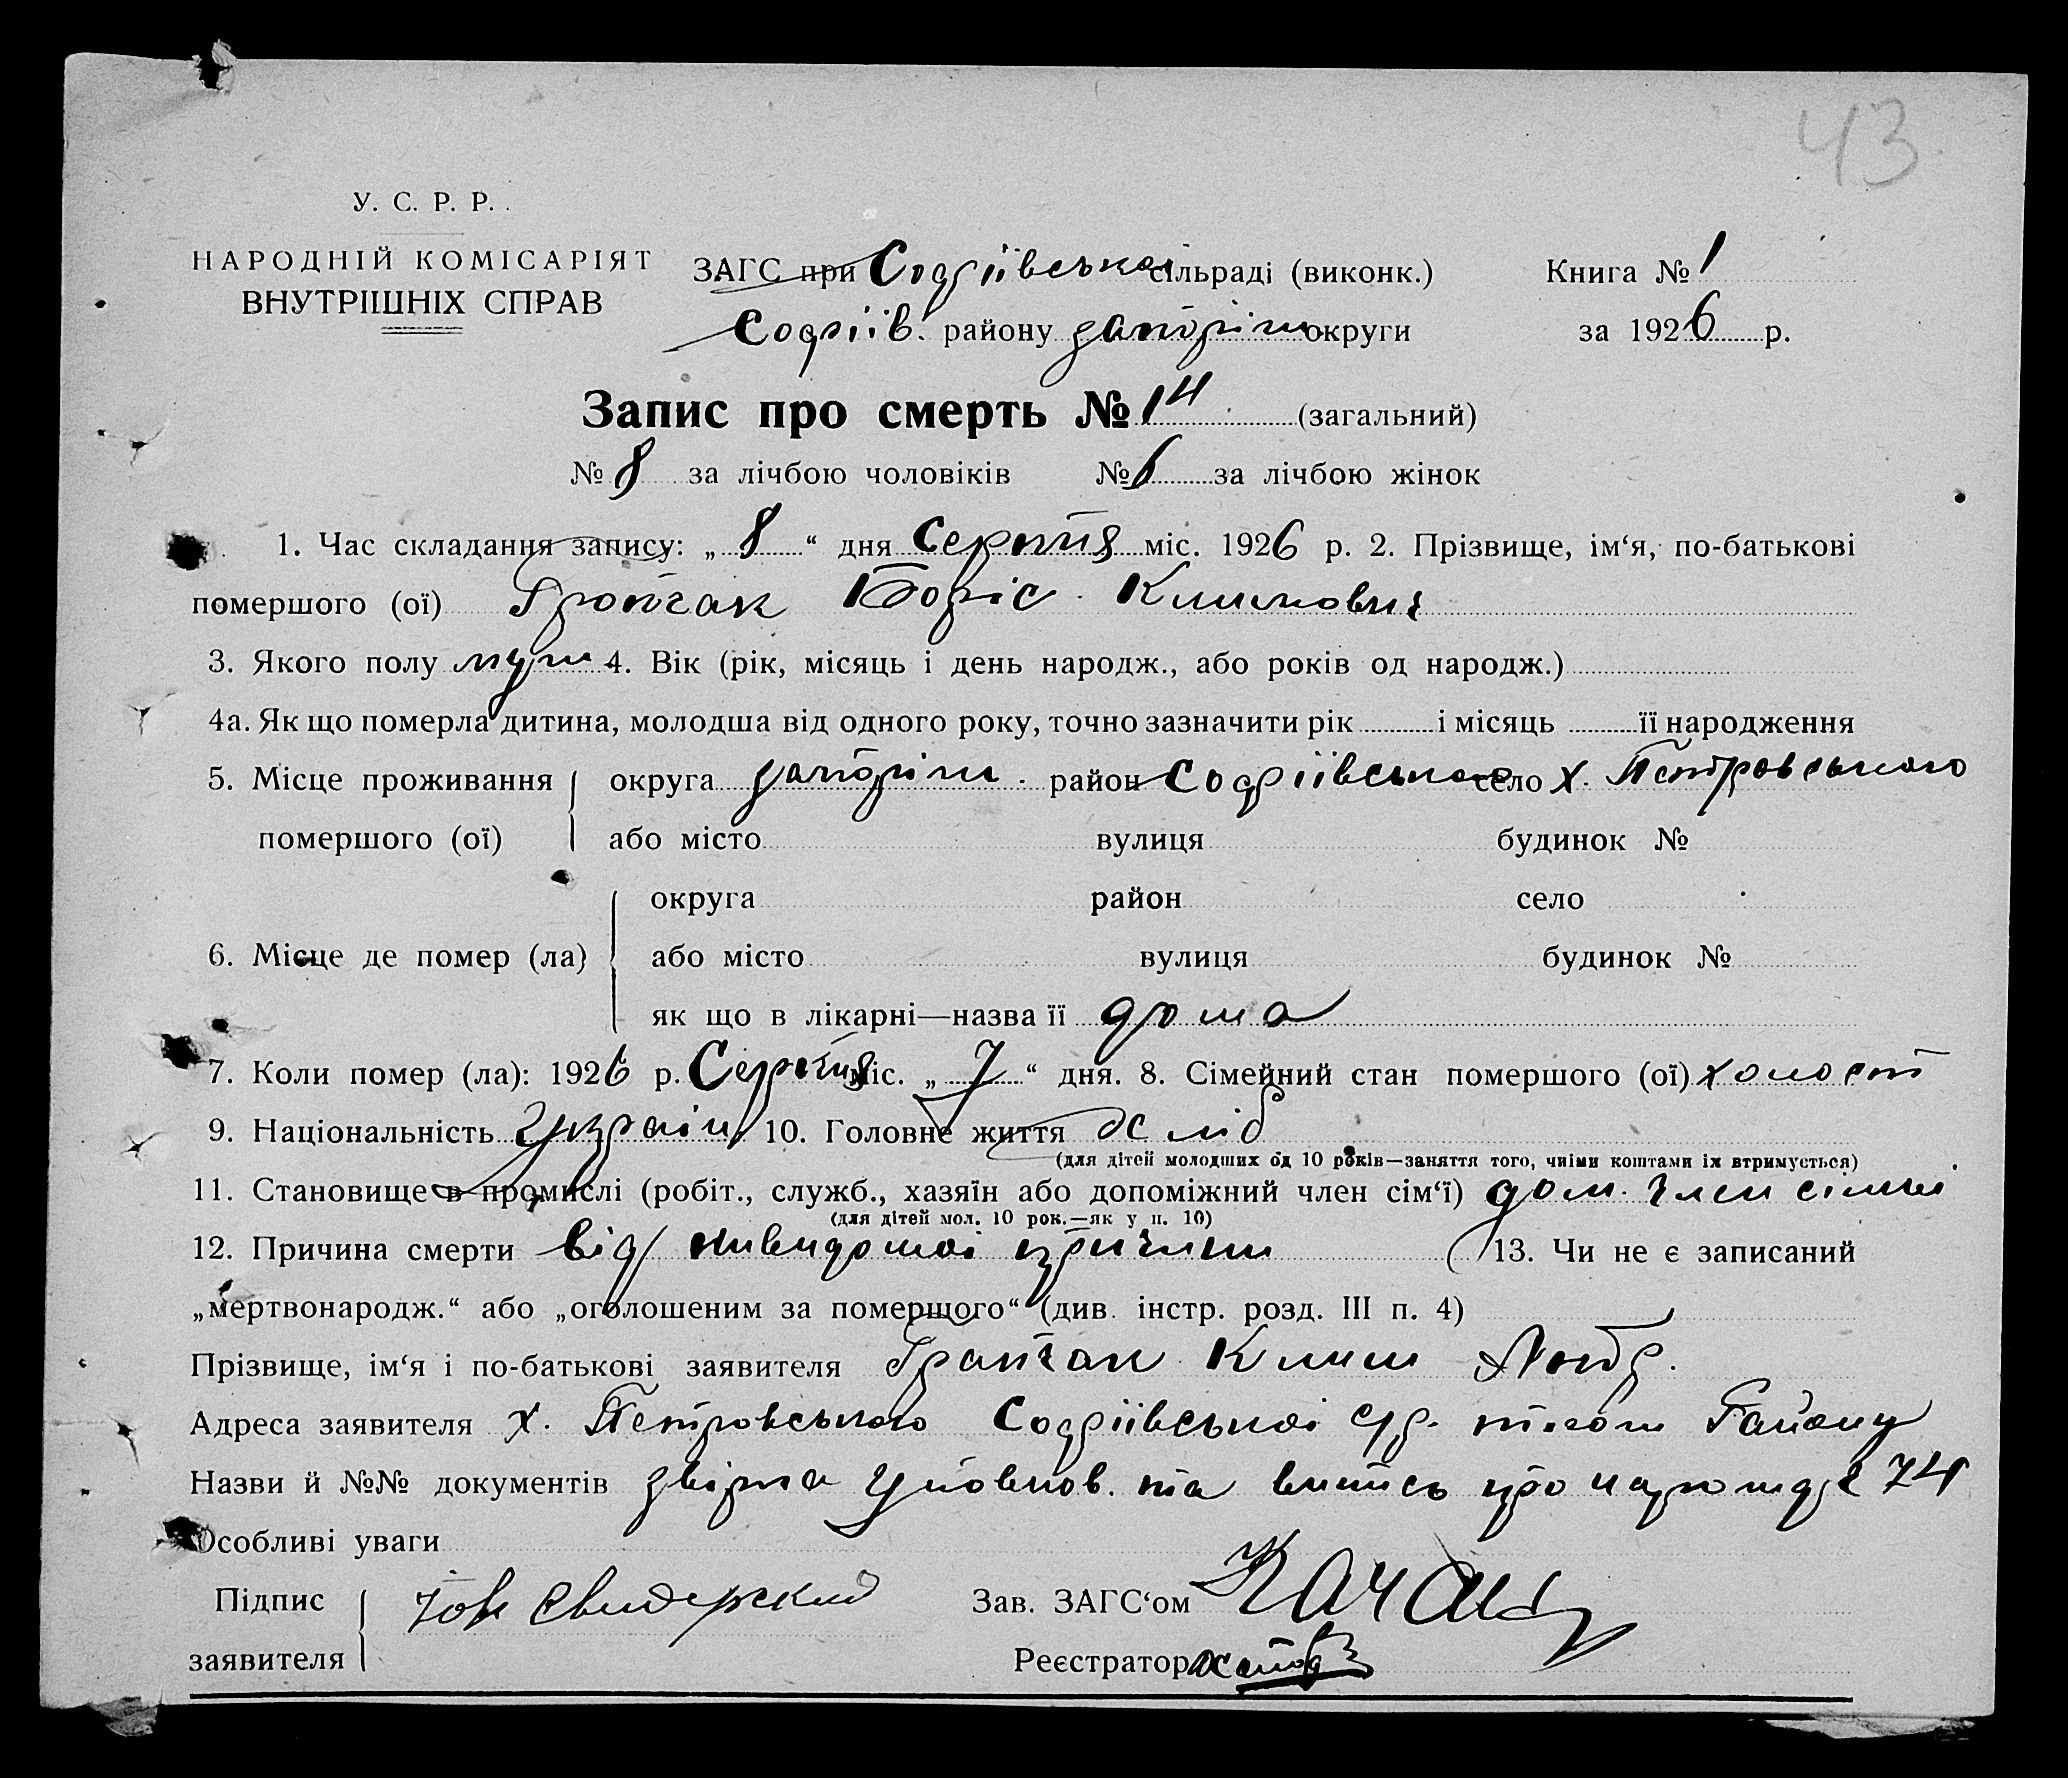 43
У. С. Р. Р.
НАРОДНІЙ КОМІСАРІЯТ
ВНУТРІШНІХ СПРАВ
ЗАГС при Софіївської сільраді (виконк.) Книга № 1
Софіїв. району Запоріж округи за 1926 р.
Запис про смерть № 14 (загальний)
№ 8 за лічбою чоловіків № 6 за лічбою жінок
1. Час складання запису: „ 8 “ дня Серпня міс. 1926 р. 2. Прізвище, ім‘я, по-батькові
помершого (ої) Борис Климович
3. Якого полу муж 4. Вік (рік, місяць і день народж., або років од народж.)
4а. Як що померла дитина, молодша від одного року, точно зазначити рік і місяць її народження
5. Місце проживання округа Запоріж. район Софіївського село х. Петровського
помершого (ої) або місто вулиця будинок №
округа район село
6. Місце де помер (ла) або місто вулиця будинок №
як що в лікарні—назва її дома
7. Коли помер (ла): 1926 р. Серпня міс. „ 7 “ дня. 8. Сімейний стан помершого (ої) холост
9. Національність Україн 10. Головне життя Хліб
(для дітей молодших од 10 років—заняття того, чиїми коштами їх втримується)
11. Становище в промислі (робіт., служб., хазяїн або допоміжний член сім‘ї) доп. член сімьи
(для дітей мол. 10 рок.—як у п. 10)
12. Причина смерти від невидомої причини 13. Чи не є записаний
„мертвонародж.“ або „оголошеним за померщого“ (див. інстр. розд. III п. 4)
Прізвище, ім‘я і по-батькові заявителя Клим
Адреса заявителя х. Петровського Софіївської с/р. того ж Району
Назви й №№ документів звірка уповнов. та випись про народж 74
Особливі уваги
Підпис
заявителя
Свидерский
Зав. ЗАГС‘ом Качан
Реєстратор